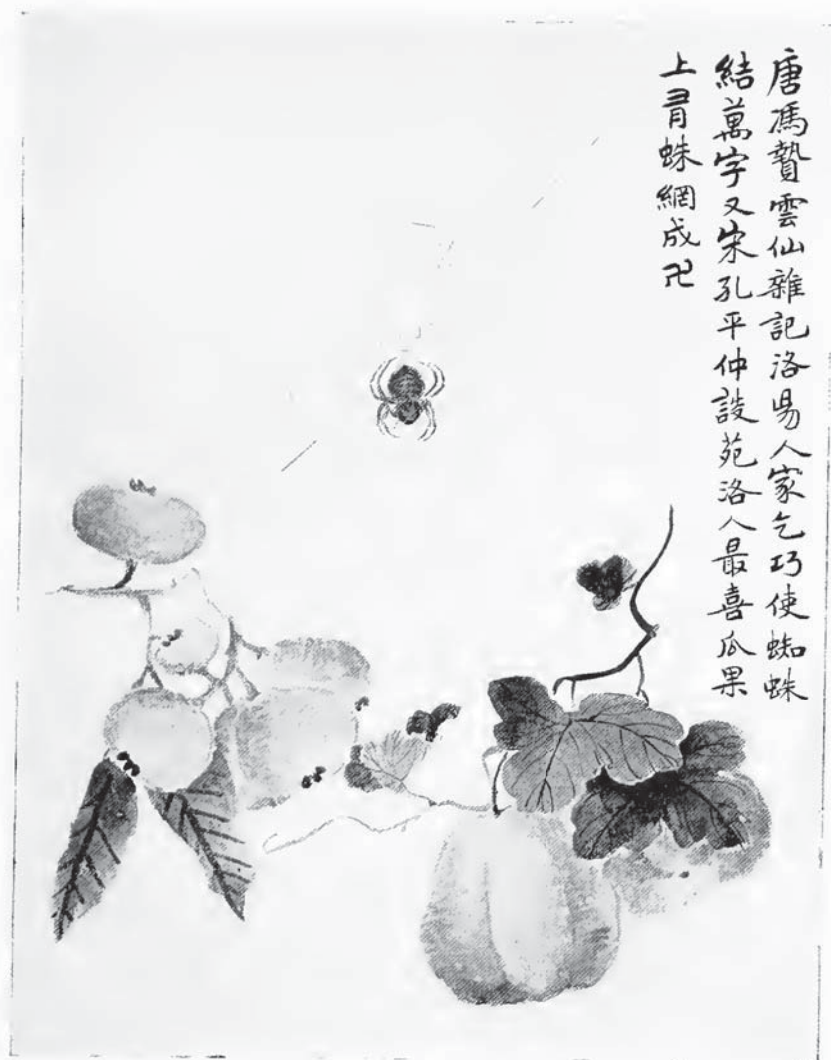 唐馮贄雲仙雜記洛昜人家乞巧使蜘蛛
結萬字又宋孔平仲設苑洛人最喜瓜果
上有蛛網成卍